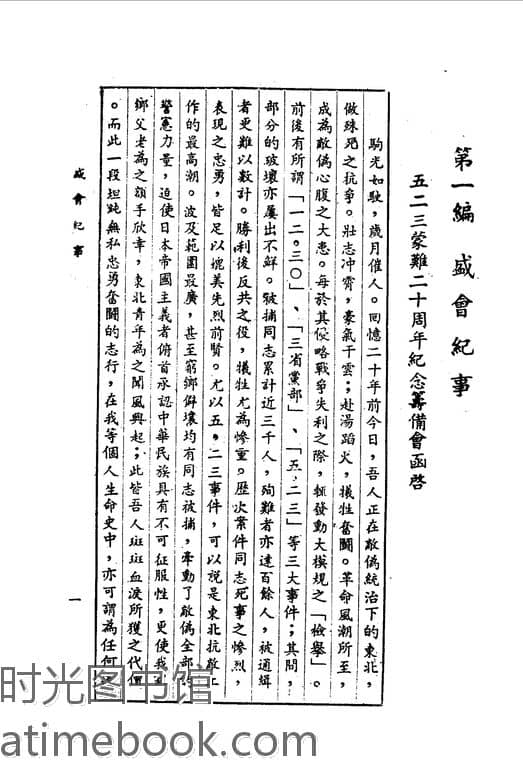 第一編 盛會紀事
五二三蒙難二十周年紀念籌備會函啓
駒光如駛，歲月催人。回憶二十年前今日，吾人正在敵偽統治下的東北，
做殊死之抗爭。壯志冲霄，豪氣干雲；赴湯蹈火，犧牲奮鬪。革命風潮所至，
成為敵偽心腹之大患。每於其侵略戰爭失利之際，輒發動大模規之「檢舉」。
前後有所謂「一二。三〇」、「三省黨部」、「五，二三」等三大事件；其間，
部分的破壞亦屢出不鮮。被捕同志累計近三千人，殉難者亦達百餘人，被通緝
者更難以數計。勝利後反共之役，犧牲尤為慘重。歷次案件同志死事之慘烈，
表現之忠勇，皆足以媲美先烈前賢。尤以五，二三事件，可以說是東北抗敵工
作的最高潮。波及範圍最廣，甚至窮鄉僻壤均有同志被捕，牽動了敵偽全部的
警憲力量，迫使日本帝國主義者俯首承認中華民族具有不可征服性，更使我
鄉父老為之額手欣幸，東北青年為之聞風興起；此皆吾人斑斑血淚所獲之代價
。而此一段坦誠無私忠勇奮鬪的志行，在我等個人生命史中，亦可謂為任何
盛會紀事
一
时光图书馆
atimebook.com